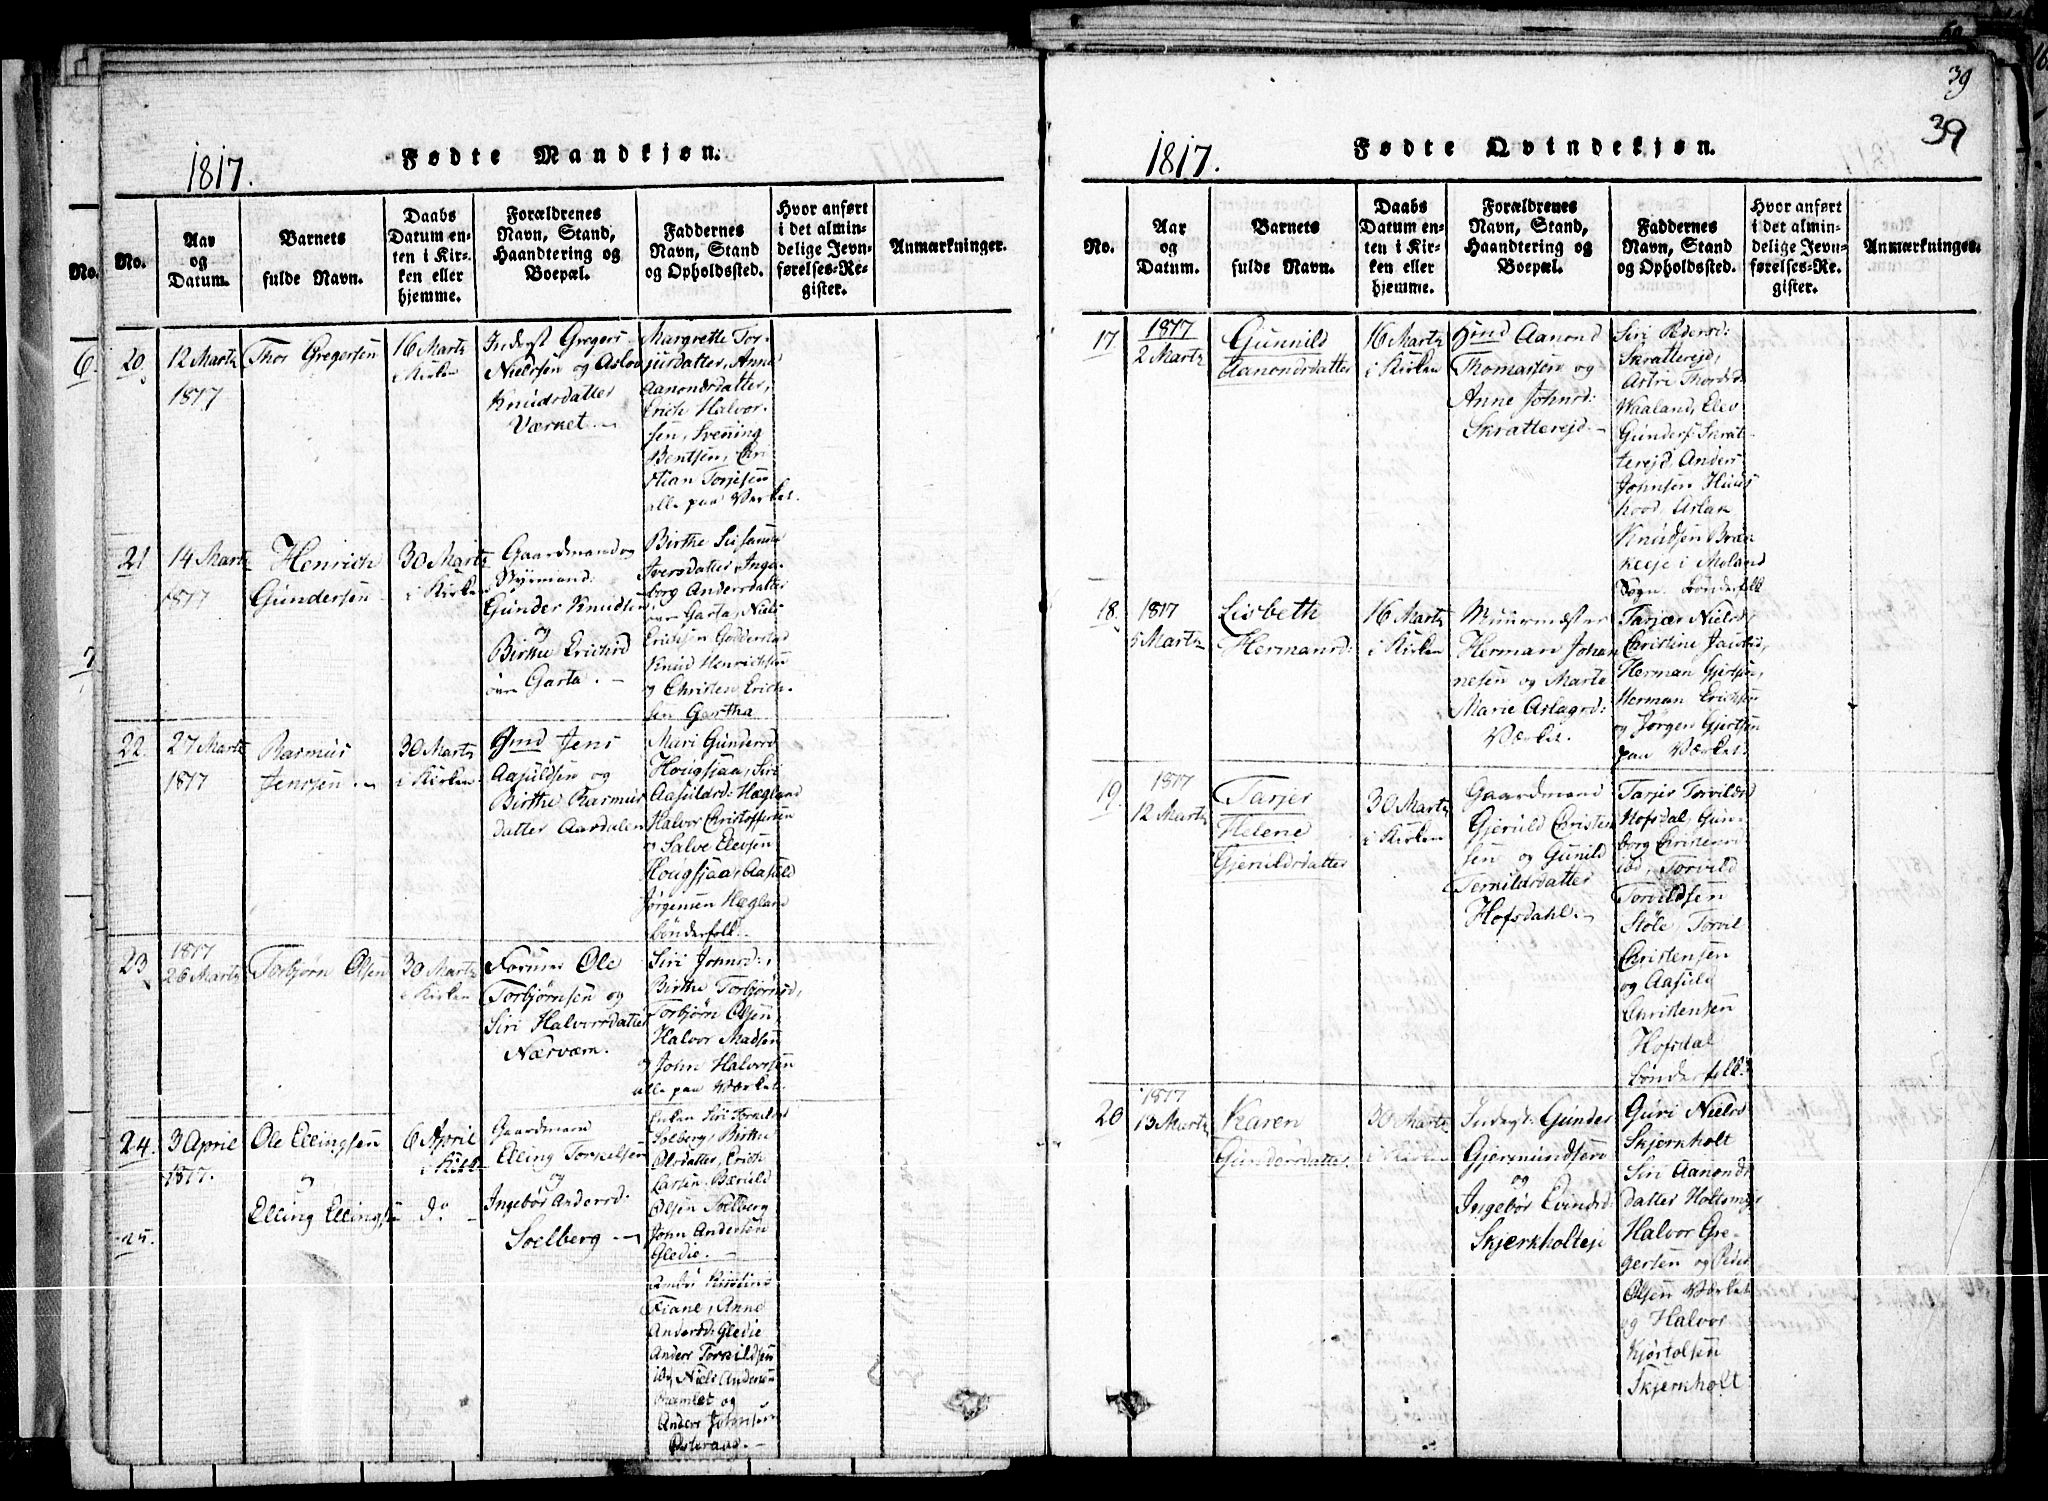 39
39
1817.
Fødte Mandkjøn.
No.
Aar
og
Datum.
Barnets
fulde Navn.
Daabs
Datum en-
ten i Kir-
ken eller
hjemme.
Forældrenes
Navn, Stand,
Haandtering og
Boepæl.
Faddernes
Navn, Stand
og Opholdssted.
Hvor anført
i det almin-
delige Jevn-
førelses-Re-
gister.
Anmærkninger.
20.
12 Martz
1817
Thor Gregersen
16 Martz
i Kirken
Inderst Gregers
Nielsen og Aslov
Knudsdatter
Værket.
Margrethe Tor-
jusdatter, Anne
Aanondsdatter,
Erich Halvor-
sen, Svenning
Bentsen, Chri
stian Torjesen
alle paa Værket.
21
14 Martz
1817
Henrich
Gundersen
30 Martz
i Kirken
Gaardmand og
Gunder Knudsen
og
Birthe Erichsd
øvre Garta.
Birthe Susanne
Iversdatter, Inge-
borg Andersdatter
øvre Garta, Niels
Erichsen Godderstad
Knud Henrichsen
og Christen Erich-
sen Gartha
22.
27 Martz
1817
Rasmus
Jenssen.
30 Martz
i Kirken
Gmd Jens
Aasuldsen og
Birthe Rasmus
datter Aasdalen
Mari Gundersd
Hougsjaa, Siri
Aasuldsd: Hægland
Halvor Christophersen
og Salve Elevsen
Hougsjaa, Aasuld
Jørgensen Hægland
bønderfolk.
23
1817
26 Martz
Torbjørn Olsen
30 Martz
i Kirken
Former Ole
Torbjørnsen og
Siri Halvorsdatter
Nærværn.
Siri Johnsd:,
Birthe Torbjørnsd,
Torbjørn Olsen,
Halvor Madsen
og John Halvorsen
alle paa Værket.
24.
3 April
1817.
Ole Ellingsen
og
6 April
i Kirk
Gaardmand
Elling Torkelsen
og
Ingebør Andersd:
Soelberg
Enken Siri Torkelsd
Solberg, Birthe
Olsdatter, Erich
Larsen, Bæruld
Olsen Soelberg
John Andersen
Gledie.
25.
Elling Ellingsen
do
Fiane, Anne
Andersd: Gledie
Anders Torkildsen
ibd, Niels Andersen
og
Anders Johnsen
Østeraas.
1817.
Fødte Qvindekjøn.
No.
Aar
og
Datum.
Barnets
fulde Navn.
Daabs
Datum en-
ten i Kir-
ken eller
hjemme.
Forældrenes
Navn, Stand,
Haandtering og
Boepæl.
Faddernes
Navn, Stand
og Opholdssted.
Hvor anført
i det almin-
delige Jevn-
førelses-Re-
gister.
Anmærkninger.
17
1817
2 Martz
Gunnild
Aanondsdatter
16 Martz
i Kirken
Gmd Aanond
Thomassen og
Anne Johnsd:
Skratterejd.
Siri Pedersd:
Skratterejd,
Astri Thordsd:
Waaland, Elev
Gunders: Skrat-
terejd, Anders
Johnsen Huus
hovd Aslak
Knudsen Bræk
keeje i Moland
Sogn. bønderfolk
18.
1817
5 Martz
Lisbeth
Hermansd:
16 Martz
i Kirken
Muurmester
Herman Johan
nesen og Marte
Marie Aslagsd:
Værket.
Tarjer Nielsd,
Christine Jacobsd,
Herman Gjertsen,
Herman Erichsen
og Jørgen Gjertsen
paa Værket.
19.
1817
12 Martz
Tarjer
Helene
Gjeruldsdatter
30 Martz
i Kirken
Gaardmand
Gjeruld Christen
sen og Gunild
Terkildsdatter
Hofsdahl.
Tarjer Torvildsd
Hofsdal Gun-
borg Christensd
ibd, Torvild
Torvildsen
Støle, Torvil
Christensen
og Aasuld
Christensen
Hofsdal
bønderfolk.
20
1817
13 Martz
Karen
Gundersdatter.
30 Martz
i Kirken
Inderst: Gunder
Gjermundsen
og
Ingebør Evindsd:
Skjerkholteje
Guri Nielsd
Skjerkholt
Siri Aanonds
datter Holtsmyr
Halvor Gre-
gersen og Peder
Olsen Værket
og Halvor
Kjøstolsen
Skjerkholt